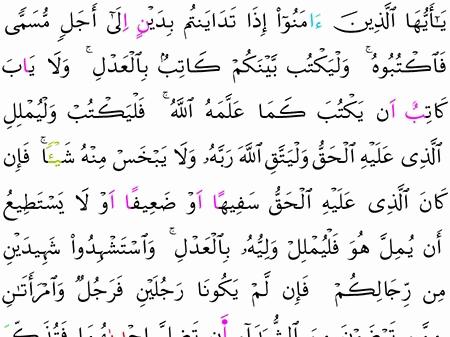 يَـٰٓأَيُّهَا ٱلَّذِينَ ءَامَنُوٓا۟ إِذَا تَدَايَنتُم بِدَيْنٍ اِلَىٰٓ أَجَلٍ مُّسَمًّى
فَٱكْتُبُوهُ ۚ وَلْيَكْتُب بَّيْنَكُمْ كَاتِبٌۢ بِٱلْعَدْلِ ۚ وَلَا يَابَ
كَاتِبٌ اَن يَكْتُبَ كَمَا عَلَّمَهُ ٱللَّهُ ۚ فَلْيَكْتُبْ وَلْيُمْلِلِ
ٱلَّذِى عَلَيْهِ ٱلْحَقُّ وَلْيَتَّقِ ٱللَّهَ رَبَّهُۥ وَلَا يَبْخَسْ مِنْهُ شَيْـًٔا ۚ فَإِن
كَانَ ٱلَّذِى عَلَيْهِ ٱلْحَقُّ سَفِيهًا اَوْ ضَعِيفًا اَوْ لَا يَسْتَطِيعُ
أَن يُمِلَّ هُوَ فَلْيُمْلِلْ وَلِيُّهُۥ بِٱلْعَدْلِ ۚ وَٱسْتَشْهِدُوا۟ شَهِيدَيْنِ
مِن رِّجَالِكُمْ فَإِن لَّمْ يَكُونَا رَجُلَيْنِ فَرَجُلٌ وَٱمْرَأَتَانِ
مِمَّن تَرْضَوْنَ مِنَ ٱلشُّهَدَآءِ اَن تَضِلَّ إِحْدَىٰهُمَا فَتُذَكِّرَ